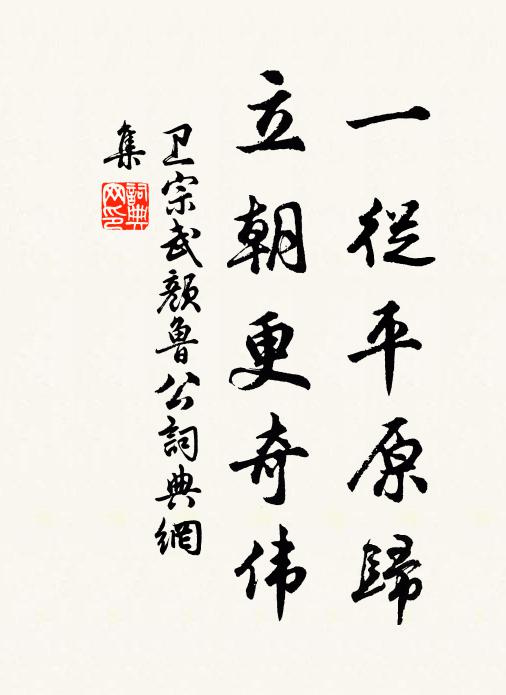 一從平原歸
立朝更奇伟
卫宗武颜魯公詞典網
集
詞典
网印